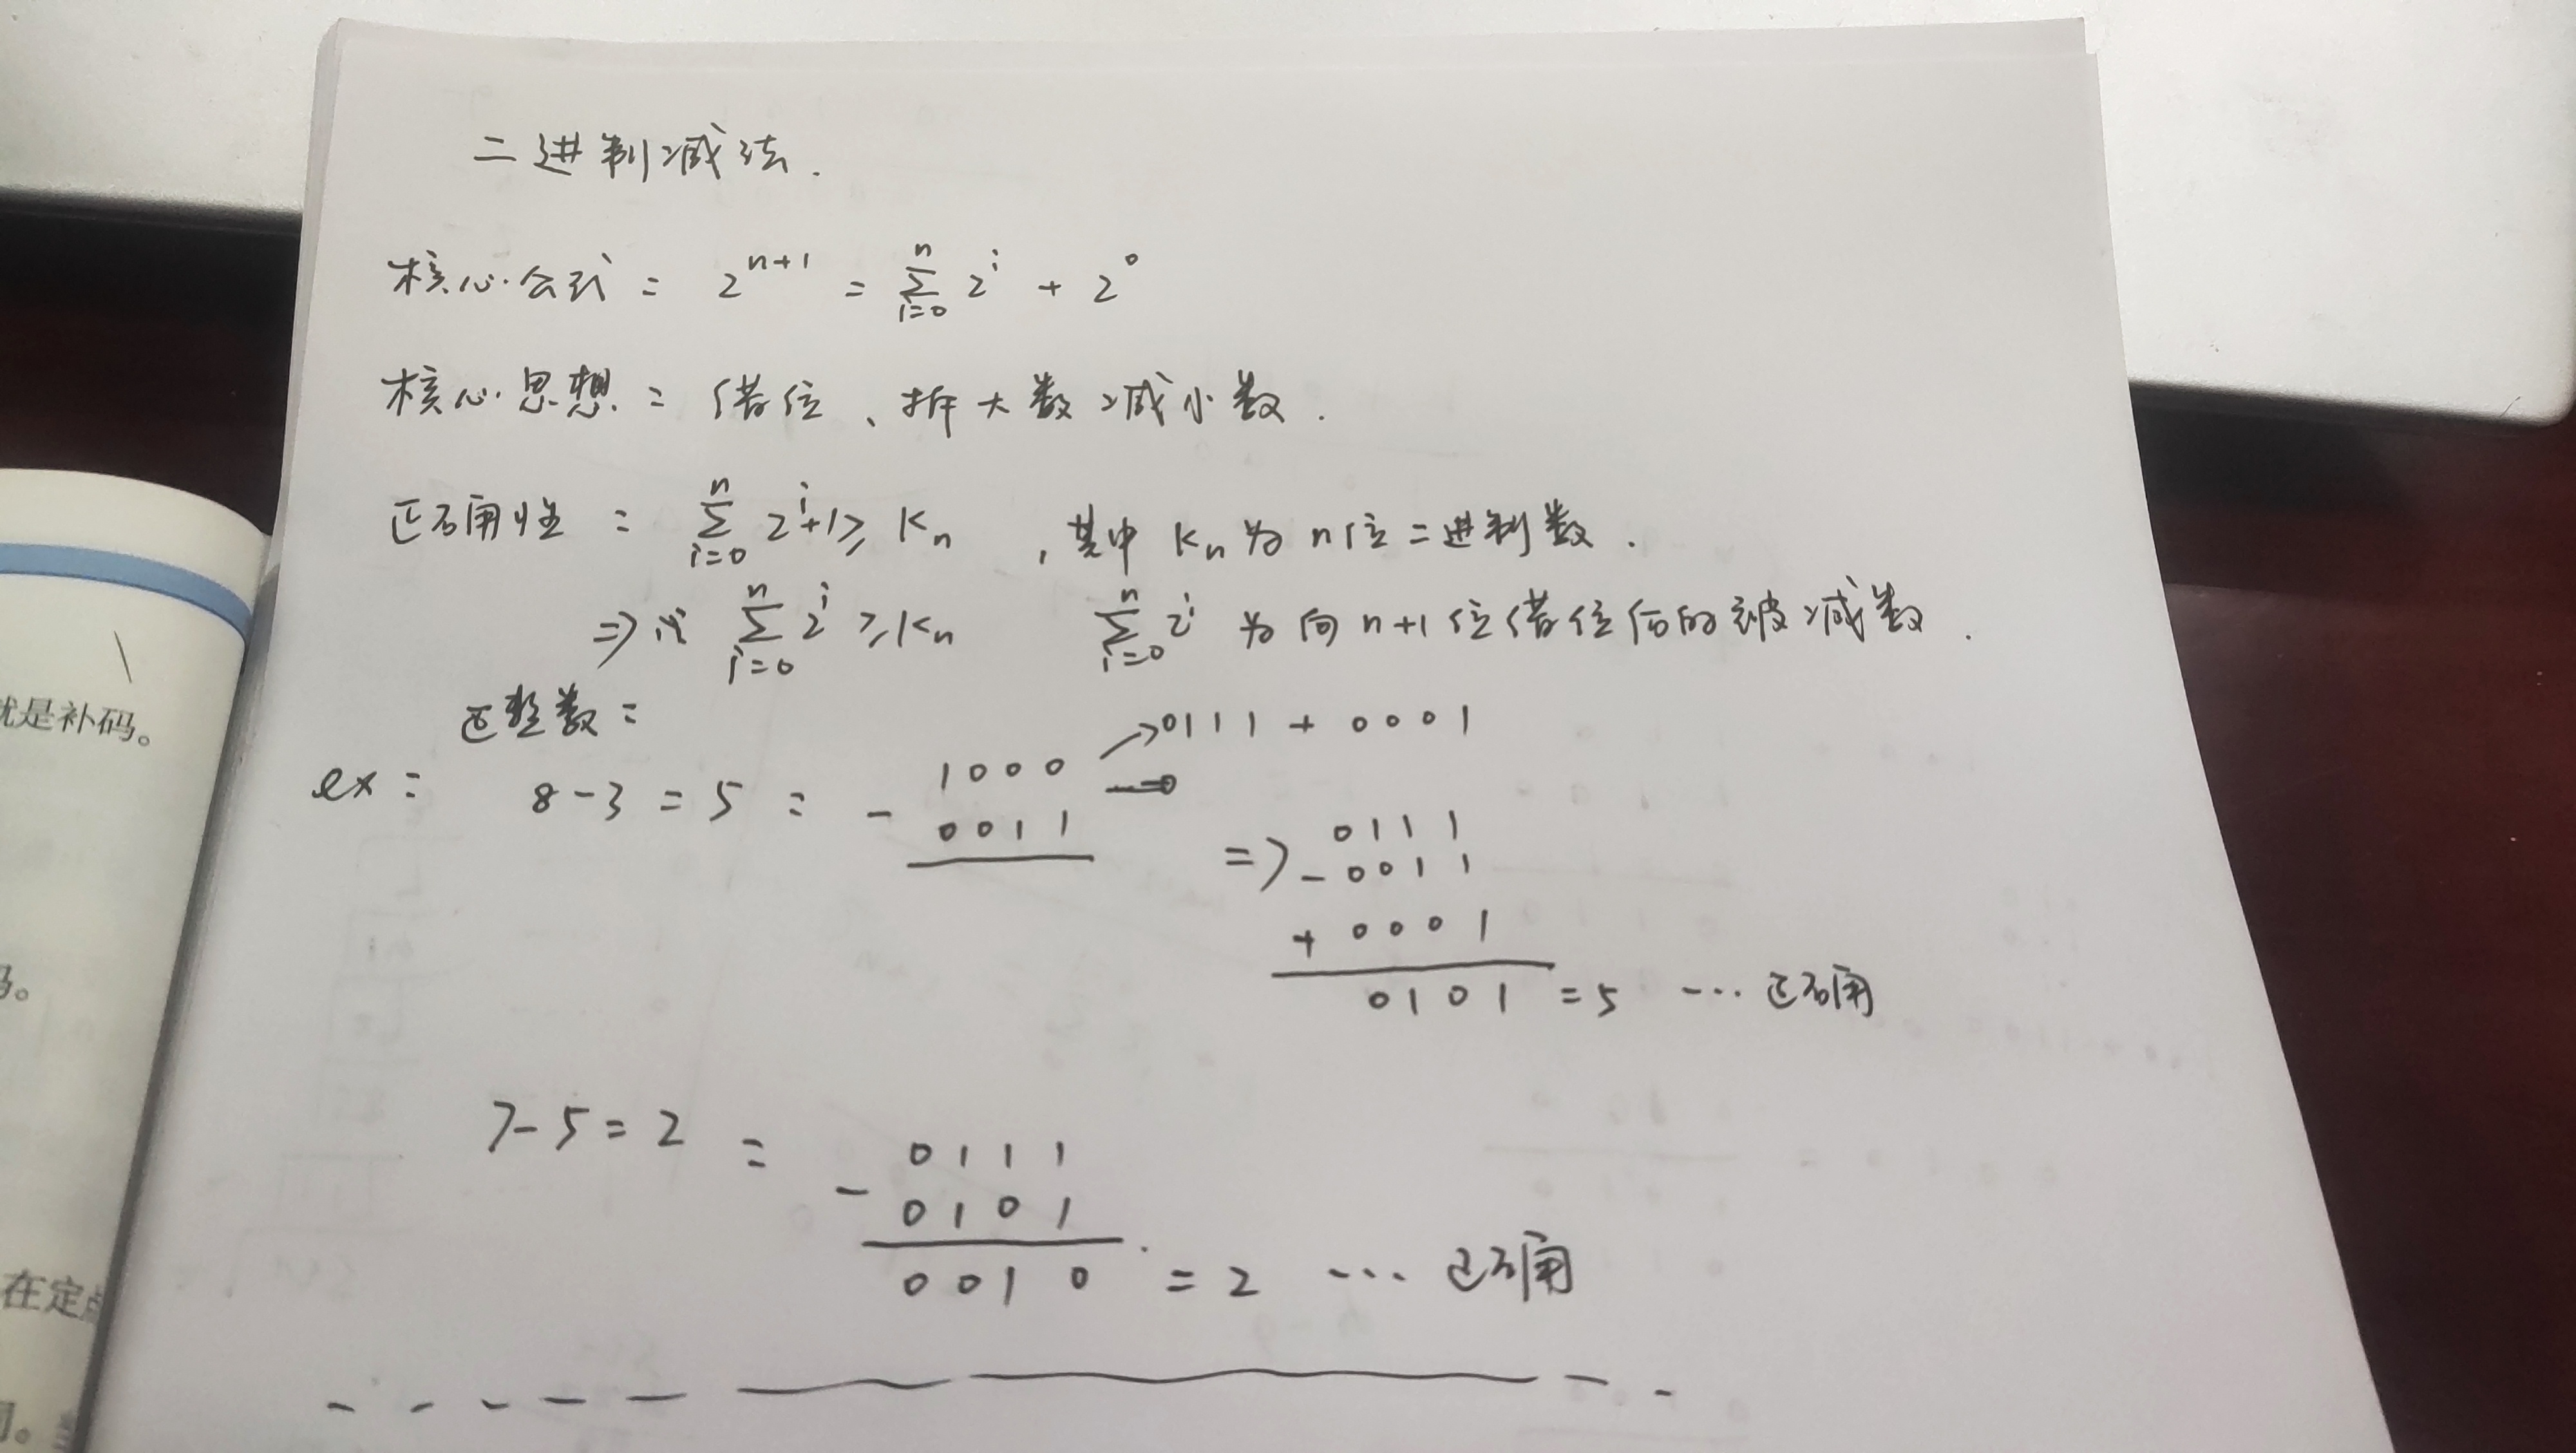 二进制减法.
核心公式: 2^{n+1} = \sum_{i=0}^{n} 2^i + 2^0
核心思想: 借位、拆大数减小数.
正确性: \sum_{i=0}^{n} 2^i+1 ≥ K_n , 其中 K_n 为 n位二进制数.
⇒ 以 \sum_{i=0}^{n} 2^i ≥ K_n \sum_{i=0}^{n} 2^i 为向 n+1 位借位后的被减数.
正整数:
→ 0111 + 0001
ex: 8-3=5 :
1000
- 0011
⇒ 0111
- 0011
+ 0001
0101 = 5 … 正确
7-5=2 :
0111
- 0101
0010 = 2 … 正确
就是补码。
码。
在定点